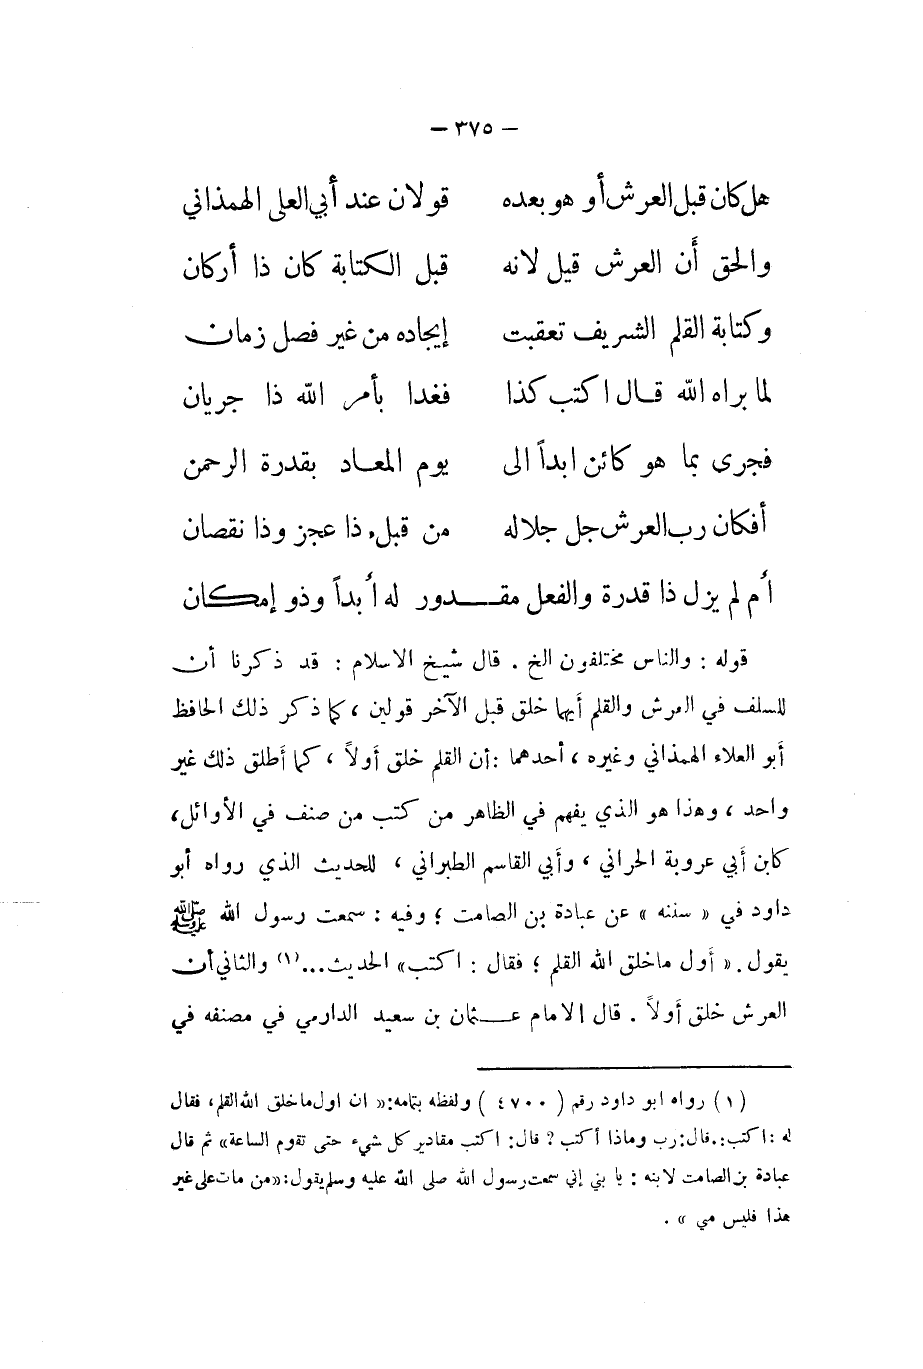 — ٣٧٥ —
هل كان قبل العرش أو هو بعده قولان عند أبي العلى الهمذاني
والحق أن العرش قيل لانه قبل الكتابة كان ذا أركان
وكتابة القلم الشريف تعقبت إيجاده من غير فصل زمان
لما براه الله قال اكتب كذا فغدا بأمر الله ذا جريان
فجرى بما هو كائن ابداً الى يوم المعاد بقدرة الرحمن
أفكان رب العرش جل جلاله من قبل، ذا عجز وذا نقصان
أم لم يزل ذا قدرة والفعل مقدور له أبداً وذو إمكان
قوله : والناس مختلفون الخ . قال شيخ الاسلام : قد ذكرنا أن
للسلف في العرش والقلم أيهما خلق قبل الآخر قولين ، كما ذكر ذلك الحافظ
أبو العلاء الهمذاني وغيره ، أحدهما :أن القلم خلق أولاً ، كما أطلق ذلك غير
واحد ، وهذا هو الذي يفهم في الظاهر من كتب من صنف في الأوائل،
كابن أبي عروبة الحراني ، وأبي القاسم الطبراني ، للحديث الذي رواه أبو
داود في « سننه » عن عبادة بن الصامت ؛ وفيه : سمعت رسول الله ﷺ
يقول . « أول ماخلق الله القلم ؛ فقال : اكتب» الحديث...(١) والثاني أن
العرش خلق أولاً . قال الامام عثمان بن سعيد الدارمي في مصنفه في
(١) رواه ابو داود رقم ( ٤٧٠٠ ) ولفظه بتمامه:« ان اول ما خلق الله القلم، فقال
له :اكتب:.قال:رب وماذا أكتب ? قال: اكتب مقادير كل شيء حتى تقوم الساعة» ثم قال
عبادة بن الصامت لابنه : يا بني إني سمعت رسول الله صلى الله عليه وسلم يقول:«من مات على غير
هذا فليس مي » .